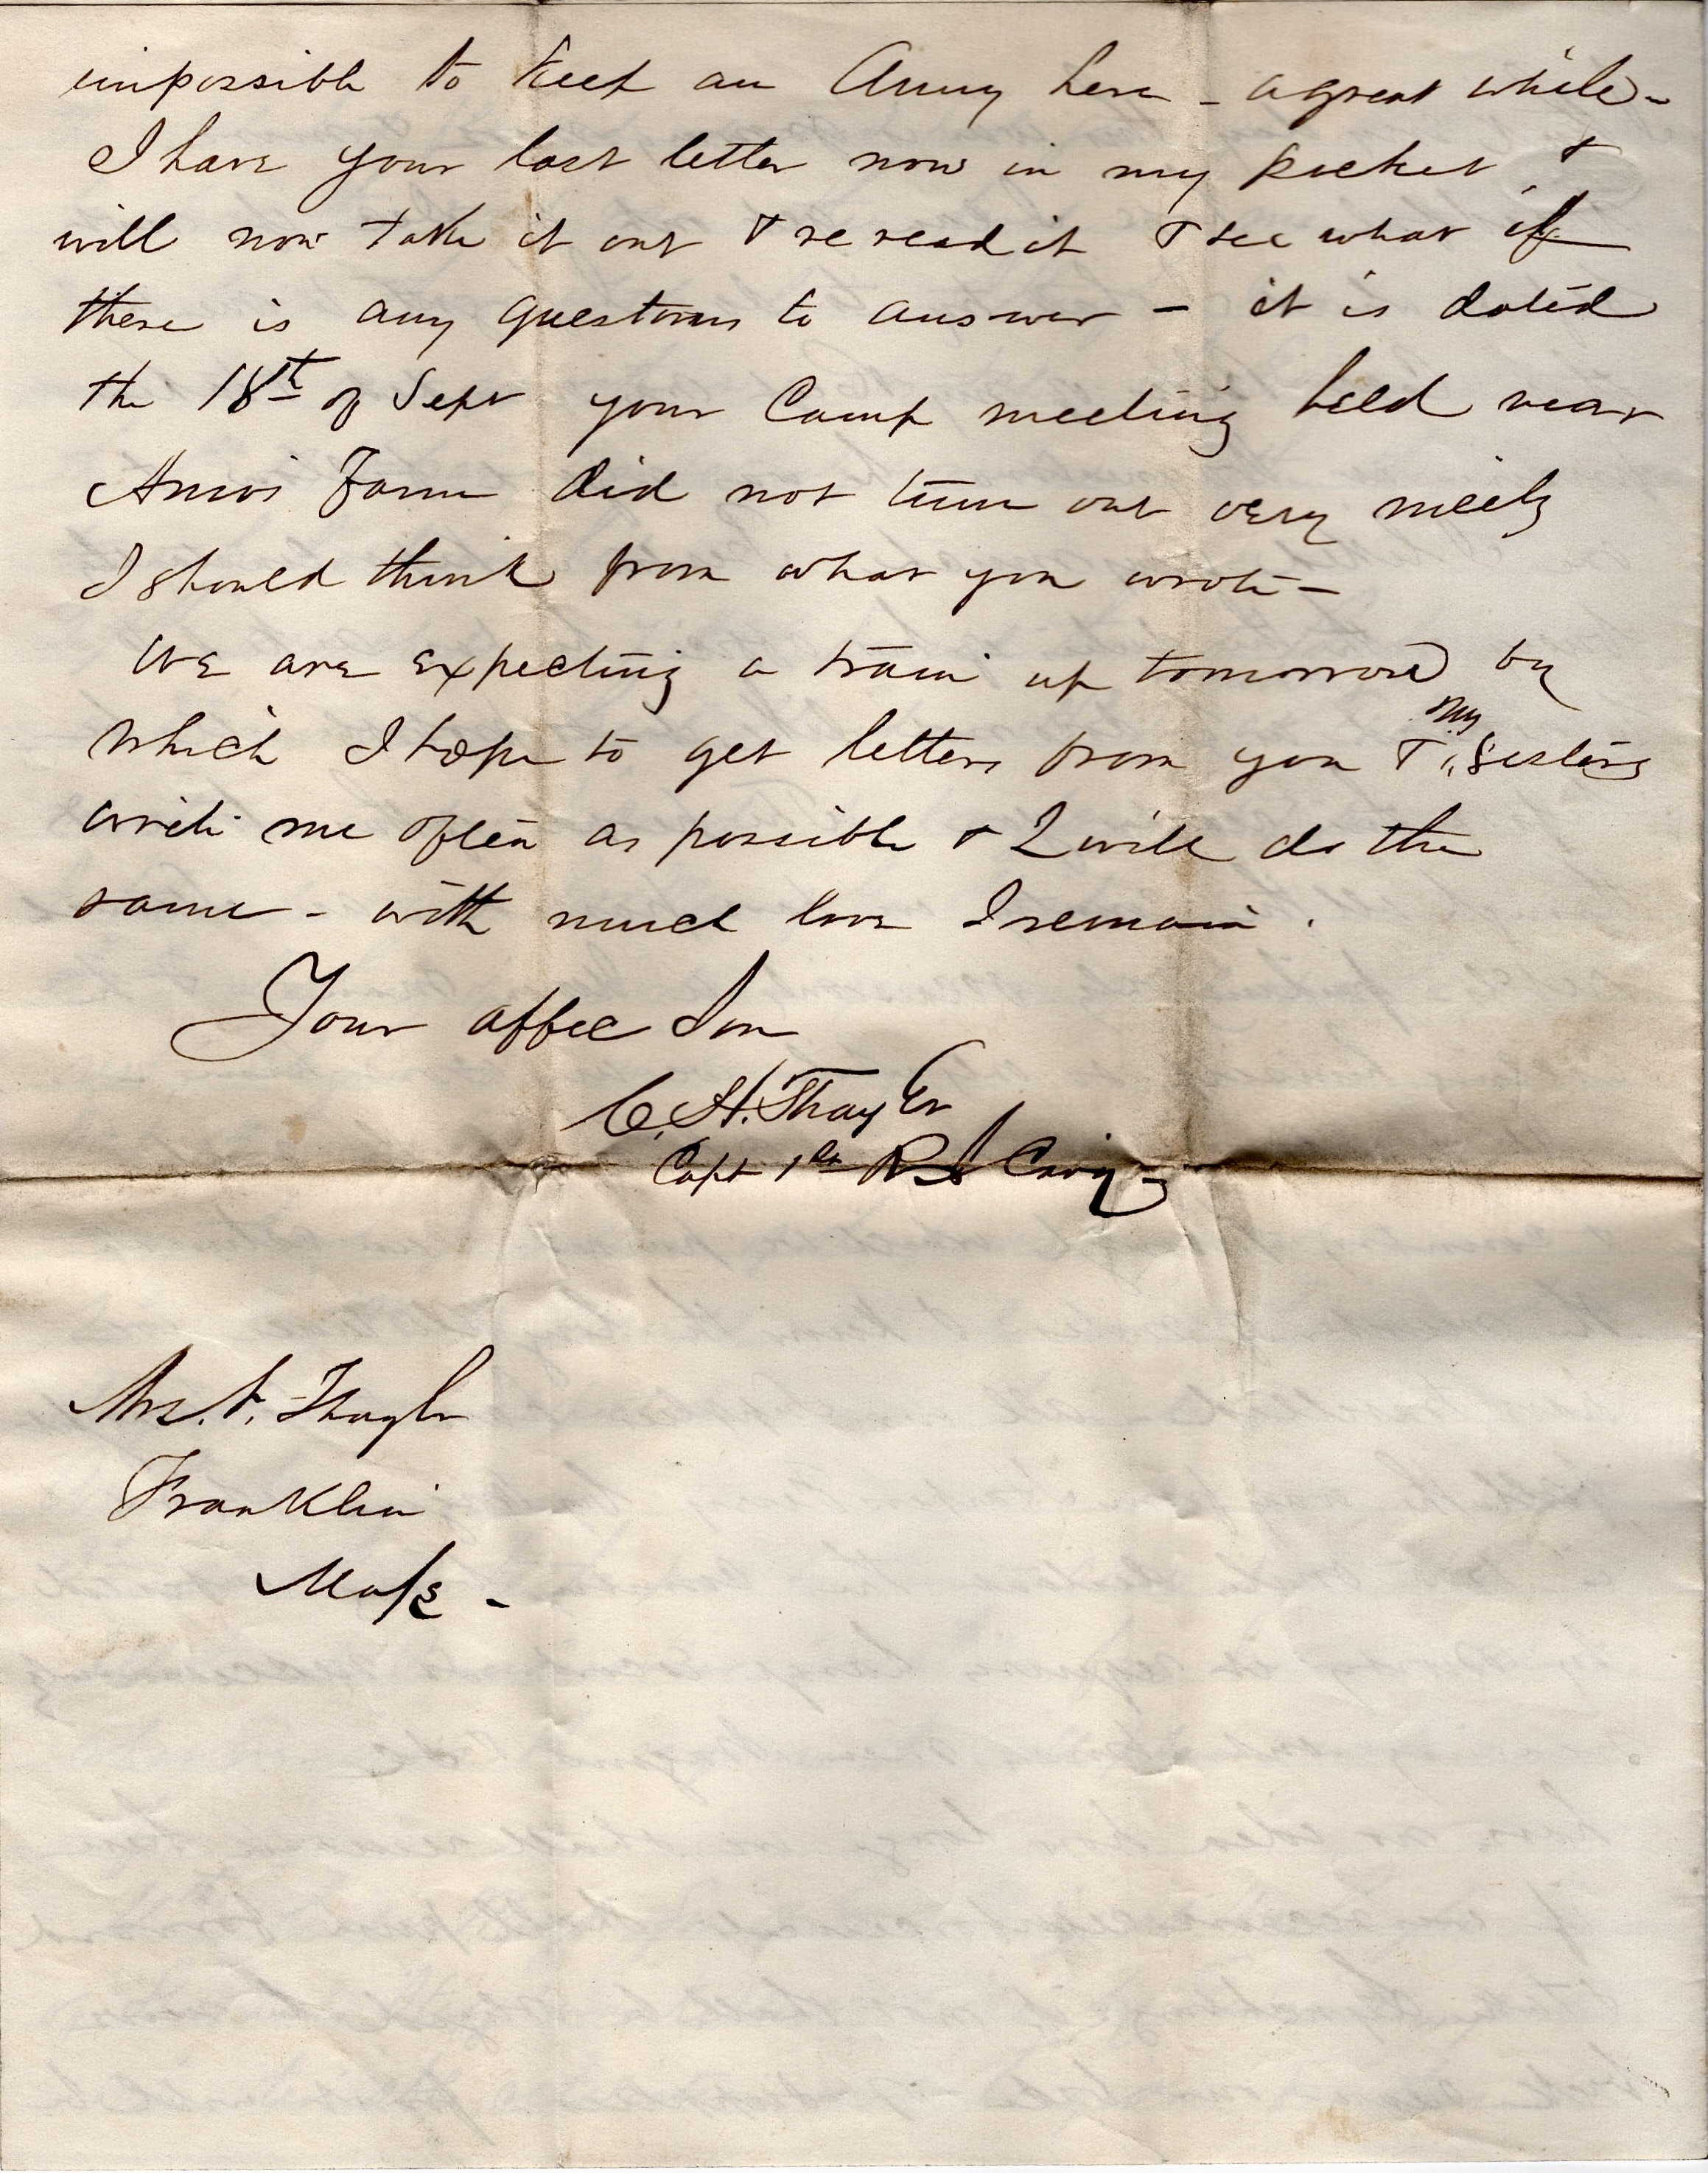 impossible to keep an Army here - a great while -
I have your last letter now in my pocket &
will now take it out & re read it & see what if
there is any questions to answer - it is dated
the 18th of Sept your Camp meeting held near
Amos Farm did not turn out very nicely
I should think from what you wrote -
We are expecting a train up tomorrow by
which I hope to get letters from you & my Sisters
write me often as possible & I will do the
same - with much love I remain .
Your affec Son
C. H. Thayer
Capt 1st R I Cavy -
Mrs. A. Thayer
Franklin
Mass -